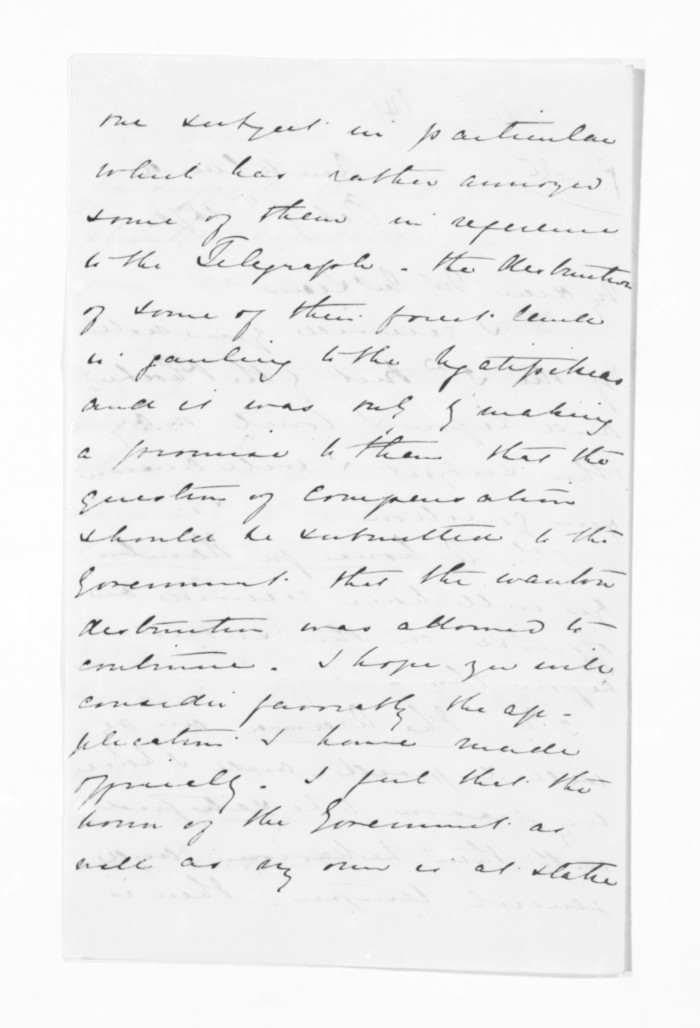 one subject in particular
which has rather annoyed
some of them in reference
to the Telegraph - the destruction
of some of their forest land
is gauling to the Ngatipikiao
and it was only by making
a promise to them that the
question of compensation
should be submitted to the
Government that the wanton
destruction was allowed to
continue. I hope you will
consider favorably the ap-
plication I have made
officially. I feel that the
honor of the Government as
well as my own is at stake